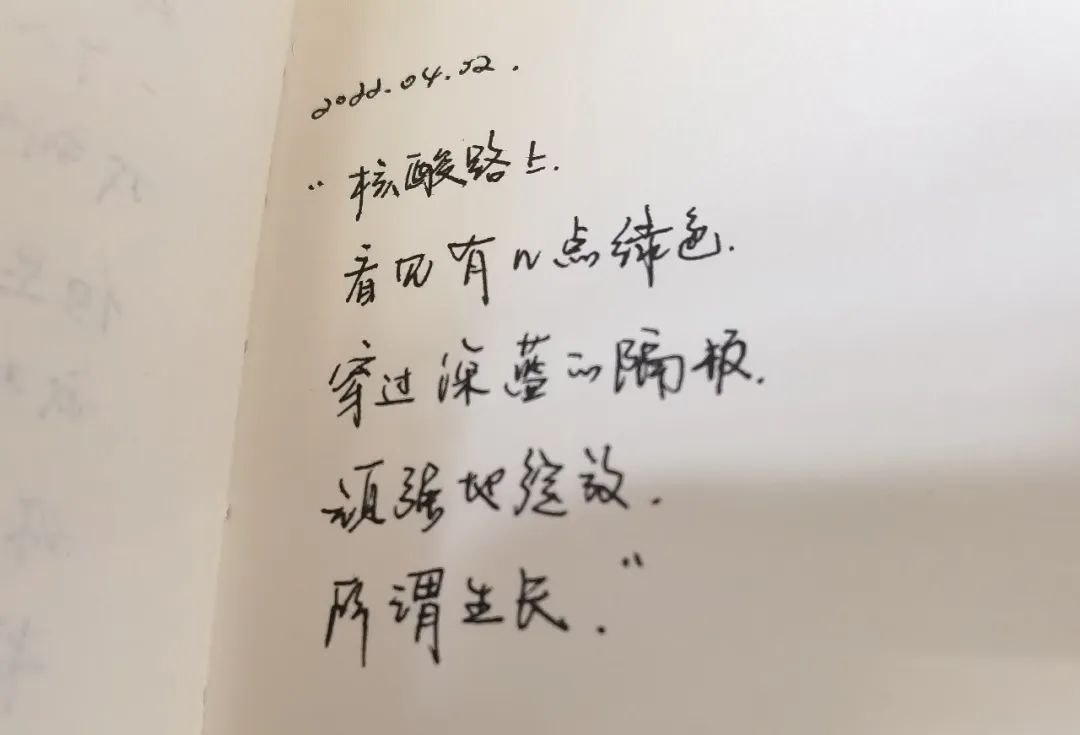 2022.04.02.
"核酸路上.
看见有n点绿色.
穿过深蓝的隔板.
顽强地绽放.
所谓生长."